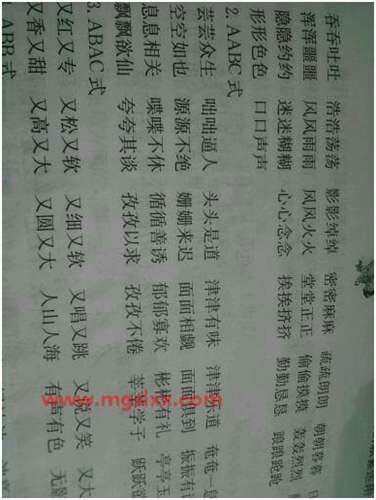 吞吞吐吐 浩浩荡荡 影影绰绰 密密麻麻 疏疏朗朗 朝朝暮暮
浑浑噩噩 风风雨雨 风风火火 堂堂正正 偷偷摸摸 轰轰烈烈
隐隐约约 迷迷糊糊 心心念念 挨挨挤挤 勤勤恳恳 踉踉跄跄
形形色色 口口声声
2. AABC 式
芸芸众生 咄咄逼人 头头是道 津津有味 津津乐道 奄奄一息
空空如也 源源不绝 姗姗来迟 面面相觑 面面俱到 振振有
息息相关 喋喋不休 循循善诱 郁郁寡欢 彬彬有礼 亭亭玉
飘飘欲仙 夸夸其谈 孜孜以求 孜孜不倦 莘莘学子 跃跃欲
3. ABAC 式
又红又专 又松又软 又细又软 又唱又跳 又说又笑 又大
又香又甜 又高又大 又圆又大 人山人海 有声有色 无影
ABB 式
www.mgdxs.com